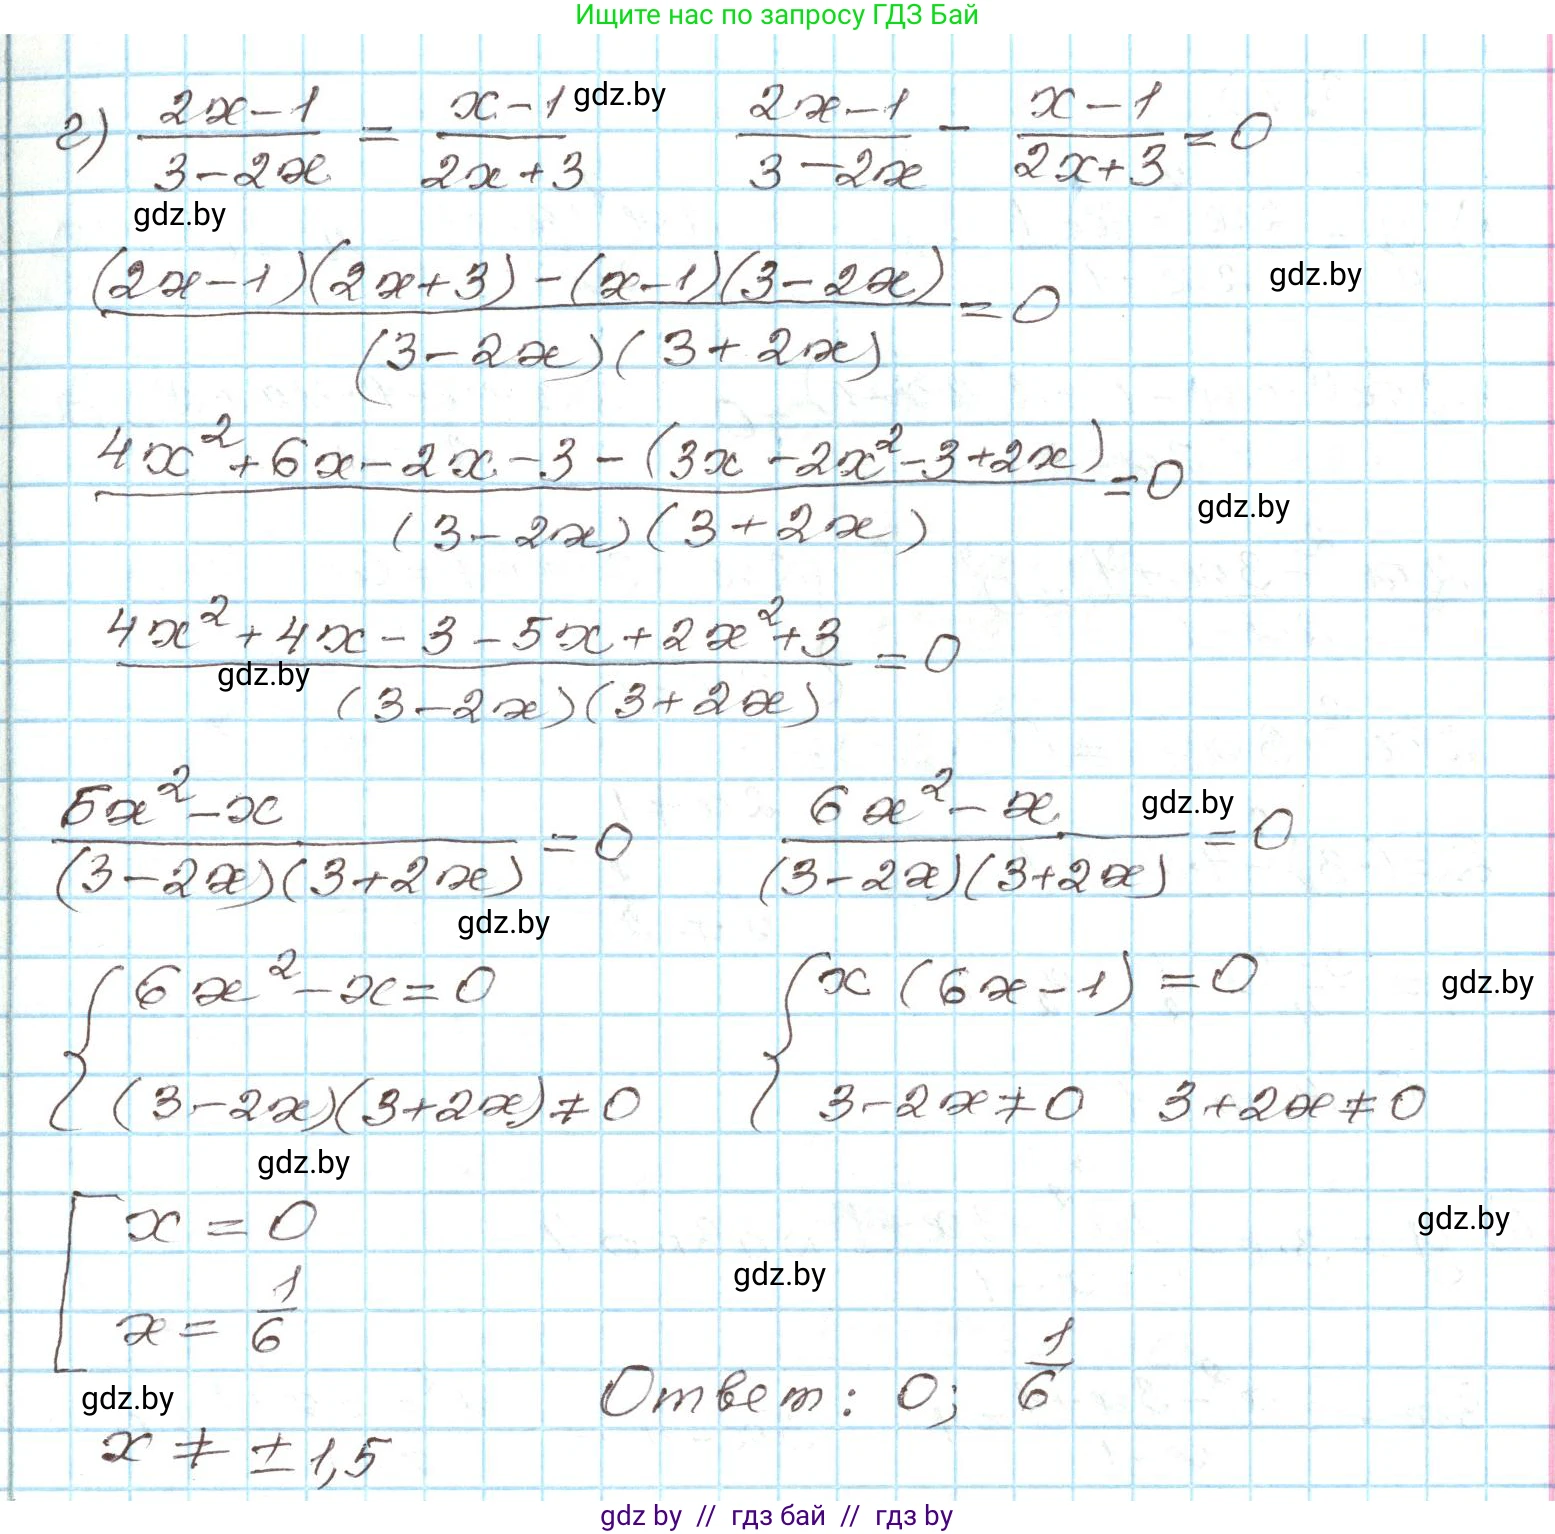 Ищите нас по запросу ГДЗ Бай
г) (2x-1)/(3-2x) = (x-1)/(2x+3) gdz.by (2x-1)/(3-2x) - (x-1)/(2x+3) = 0
gdz.by
((2x-1)(2x+3)-(x-1)(3-2x))/((3-2x)(3+2x)) = 0 gdz.by
(4x²+6x-2x-3-(3x-2x²-3+2x))/((3-2x)(3+2x)) = 0 gdz.by
(4x²+4x-3-5x+2x²+3)/((3-2x)(3+2x)) = 0
gdz.by
(6x²-x)/((3-2x)(3+2x)) = 0 (6x²-x)/((3-2x)(3+2x)) = 0 gdz.by
gdz.by
{ 6x²-x=0 { x(6x-1)=0 gdz.by
(3-2x)(3+2x)≠0 3-2x≠0 3+2x≠0
gdz.by
[ x = 0 gdz.by
gdz.by
x = 1/6
Ответ: 0; 1/6
gdz.by
x ≠ ± 1,5
gdz by // гдз бай // гдз by